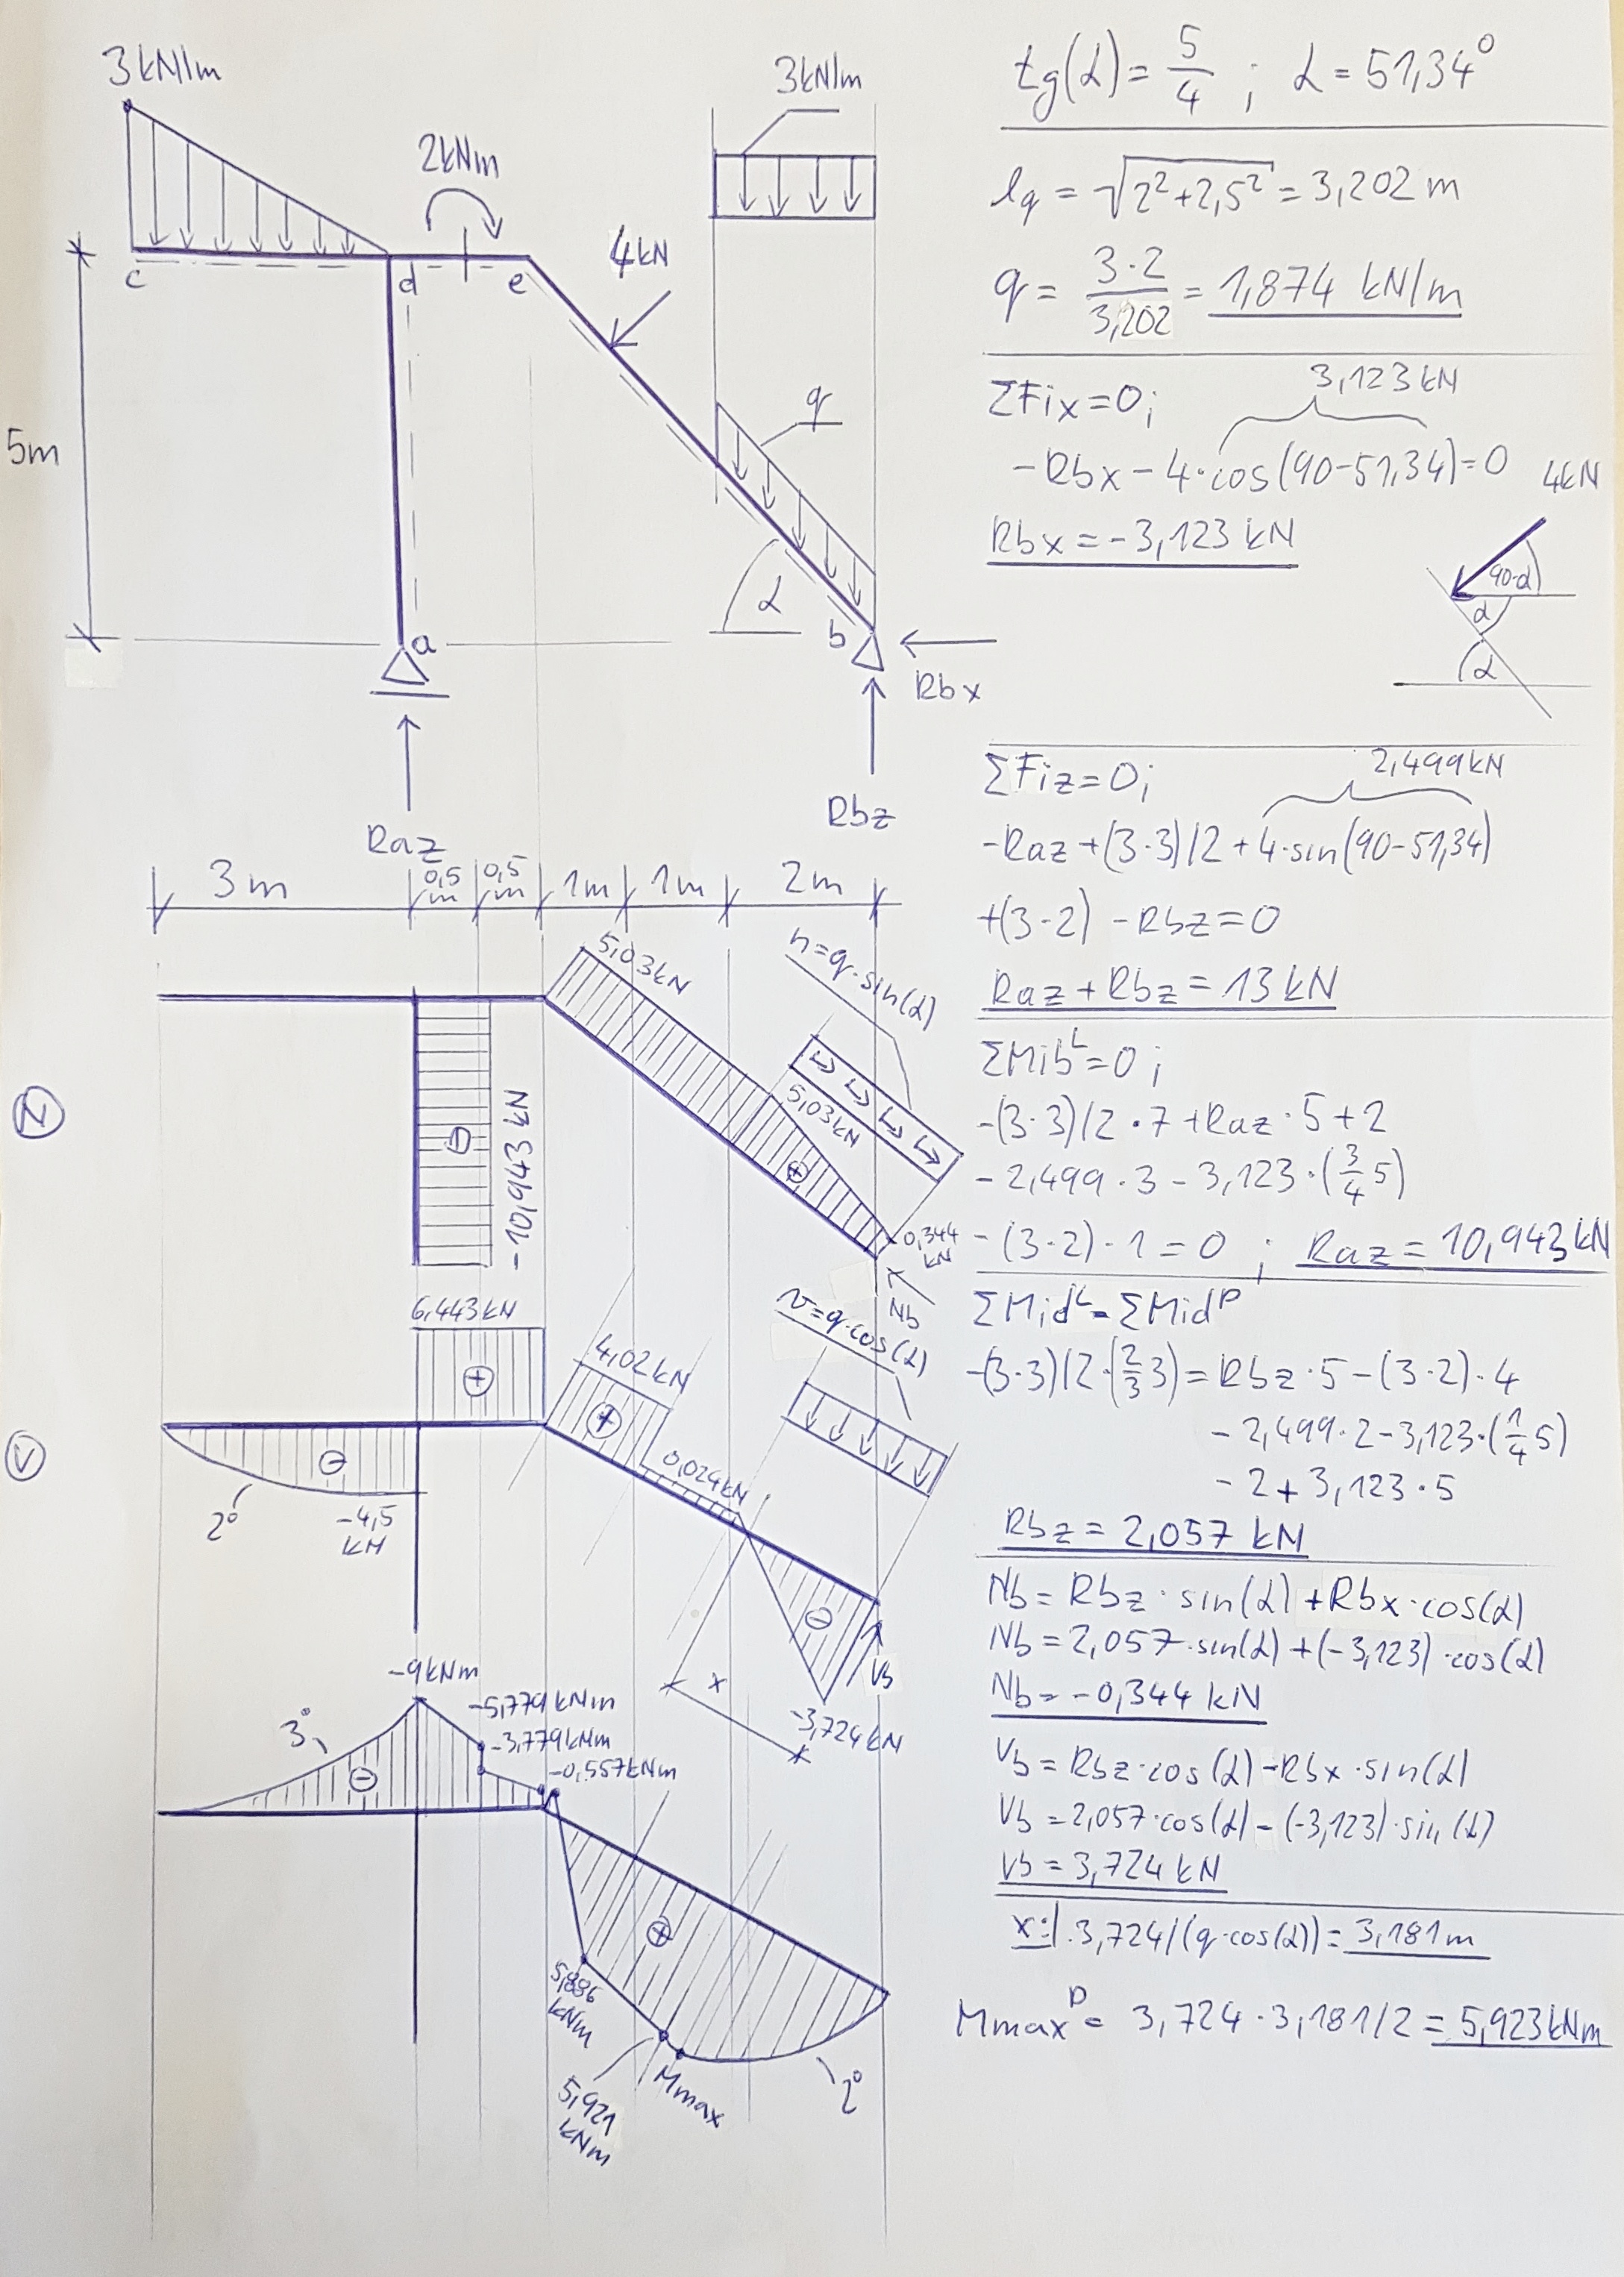 3kN/m
3kN/m
2kNm
4kN
c
d
e
5m
q
α
a
b
Rbx
Raz
Rbz
3m
0,5
m
0,5
m
1m
1m
2m
tg(α) = 5/4 ; α = 51,34°
lq = √2²+2,5² = 3,202 m
q = 3·2/3,202 = 1,874 kN/m
ΣFix=0;
3,123kN
-Rbx - 4·cos(90-51,34)=0
Rbx = -3,123 kN
4kN
90-α
α
α
ΣFiz=0;
2,499kN
-Raz +(3·3)/2 + 4·sin(90-51,34)
+(3·2) - Rbz=0
Raz + Rbz = 13 kN
ΣMibᴸ=0 ;
-(3·3)/2 · 7 + Raz · 5 + 2
- 2,499 · 3 - 3,123 · (3/4 5)
- (3·2) · 1 = 0 ; Raz = 10,943 kN
ΣMidᴸ = ΣMidᴾ
-(3·3)/2·(2/3 3) = Rbz · 5 - (3·2) · 4
- 2,499 · 2 - 3,123 · (1/4 5)
- 2 + 3,123 · 5
Rbz = 2,057 kN
Nb = Rbz · sin(α) + Rbx · cos(α)
Nb = 2,057 · sin(α) + (-3,123) · cos(α)
Nb = -0,344 kN
Vb = Rbz · cos(α) - Rbx · sin(α)
Vb = 2,057 · cos(α) - (-3,123) · sin(α)
Vb = 3,724 kN
x: 3,724/(q·cos(α)) = 3,181m
Mmaxᴾ = 3,724 · 3,181/2 = 5,923kNm
N
5,03kN
n=q·sin(α)
5,03kN
-10,943 kN
-
+
0,344
kN
Nb
V
6,443kN
+
4,02kN
+
0,024kN
v=q·cos(α)
-
2°
-4,5
kN
-
x
Vb
-3,724kN
-9kNm
-5,779kNm
-3,779kNm
-0,557kNm
3°
-
+
5,886
kNm
5,921
kNm
Mmax
2°